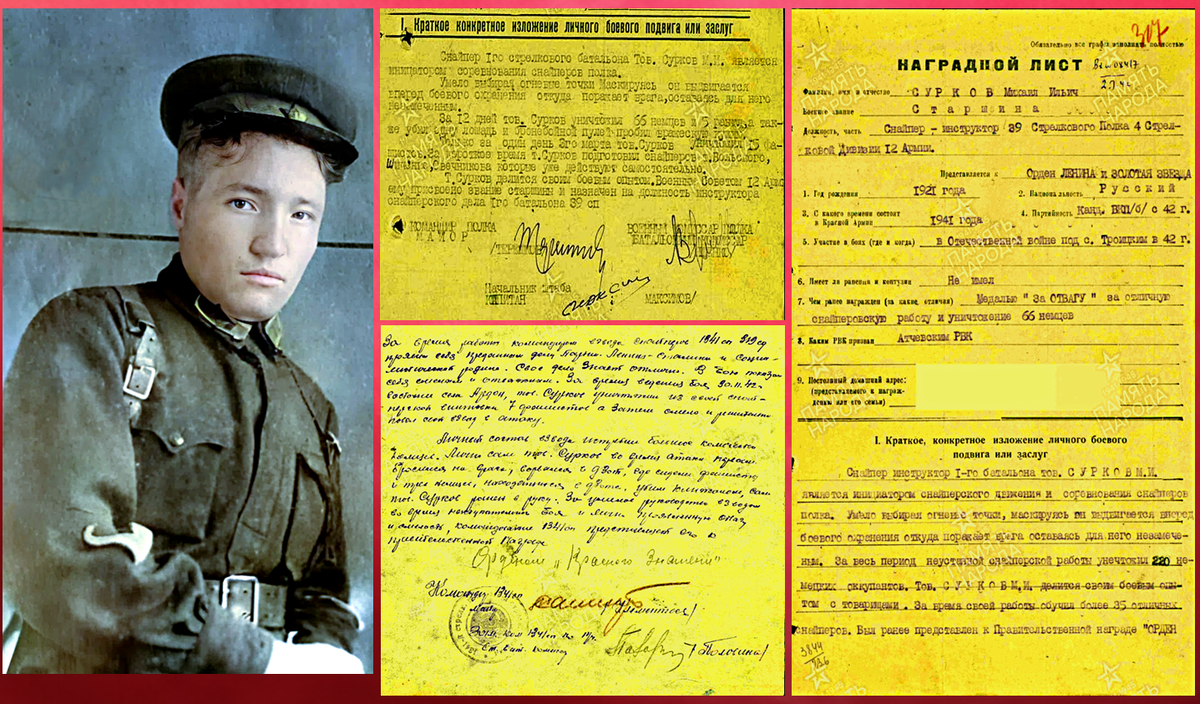 I. Краткое конкретное изложение личного боевого подвига или заслуг
Снайпер Iго стрелкового батальона Тов. Сурков М.И. является
инициатором соревнования снайперов полка.
Умало выбирая огневые точки Маскируясь он выдвигается
вперед боевого охранения откуда поражает врага, оставаясь для него
незамеченным.
За 12 дней тов. Сурков уничтожил 66 немцев и 5 ранил, а так-
же убил одну лошадь и бронебойной пулей пробил вражескую
Только за один день 3го марта тов. Сурков уничтожил 15 фа-
шистов. За короткое время т. Сурков подготовил снайперов т. Вольского,
Свечникова которые уже действуют самостоятельно.
Т. Сурков делится своим боевым опытом. Военным Советом 12 Арм
ему присвоено звание старшины и назначен на должность инструктора
снайперского дела Iго батальона 39 сп
КОМАНДИР ПОЛКА
МАЙОР
ВОЕННЫЙ КОМИССАР ПОЛКА
БАТАЛЬОННЫЙ КОМИССАР
Начальник штаба
КАПИТАН МАКСИМОВ/
За время работы командиром взвода снайперов 1341 сп 319 сд
проявил себя преданным делу партии Ленина-Сталина и социа-
листической родине. Свое дело знает отлично. В бою показал
себя смелым и отважным. За время ведения боя 30.11.42г.
восточнее сел. Ардон, тов. Сурков уничтожил из своей снай-
перской винтовки 7 фашистов а затем смело и решительно
повел свой взвод в атаку.
Личный состав взвода истребил большое количество
Лично сам тов. Сурков во время атаки первым
бросился на врага, ворвался в дзот, где сидели фашисты
и три немца, находящиеся в дзоте, убил кинжалом, сам
тов. Сурков ранен в руку. За умелое руководство взводом
во время наступательного боя и лично проявленную отвагу
и смелость, командование 1341 сп представляет его к
правительственной награде
Орденом „Красного Знамени"
Командир 1341 сп
майор
Зам. ком 1341 сп по п/ч
ст. бат. комисс /Половина/
307
Обязательно все графы исполнять полностью
НАГРАДНОЙ ЛИСТ
Фамилия, имя и отчество СУРКОВ Михаил Ильич
Воинское звание Старшина
Должность, часть Снайпер - инструктор 39 Стрелкового Полка 4 Стрел-
ковой Дивизии 12 Армии.
Представляется к Орден ЛЕНИНА и ЗОЛОТАЯ ЗВЕЗДА
1. Год рождения 1921 года 2. Национальность Русский
3. С какого времени состоит в Красной Армии 1941 года 4. Партийность Канд. ВКП/б/ с 42 г.
5. Участие в боях (где и когда) в Отечественной войне под с. Троицким в 42 г.
6. Имеет ли ранения и контузии Не имел
7. Чем ранее награжден (за какие отличия) Медалью "За ОТВАГУ" за отличную
снайперовскую работу и уничтожение 66 немцев
8. Каким РВК призван Атчевским РВК
9. Постоянный домашний адрес:
(представляемого к награж-
дению или его семьи)
I. Краткое, конкретное изложение личного боевого
подвига или заслуг
Снайпер инструктор I-го батальона тов. СУРКОВ М.И.
является инициатором снайперского движения и соревнования снайперов
полка. Умало выбирая огневые точки, маскируясь он выдвигается вперед
боевого охранения откуда поражает врага оставаясь для него незамече-
ным. За весь период неустаной снайперской работы унечтожил 220 не-
мецких оккупантов. Тов. СУРКОВ М.И. делится своим боевым опы-
том с товарищами. За время своей работы обучил более 35 отличных
снайперов. Был ранее представлен к Правительственной награде "ОРДЕН
ПАМЯТЬ НАРОДА